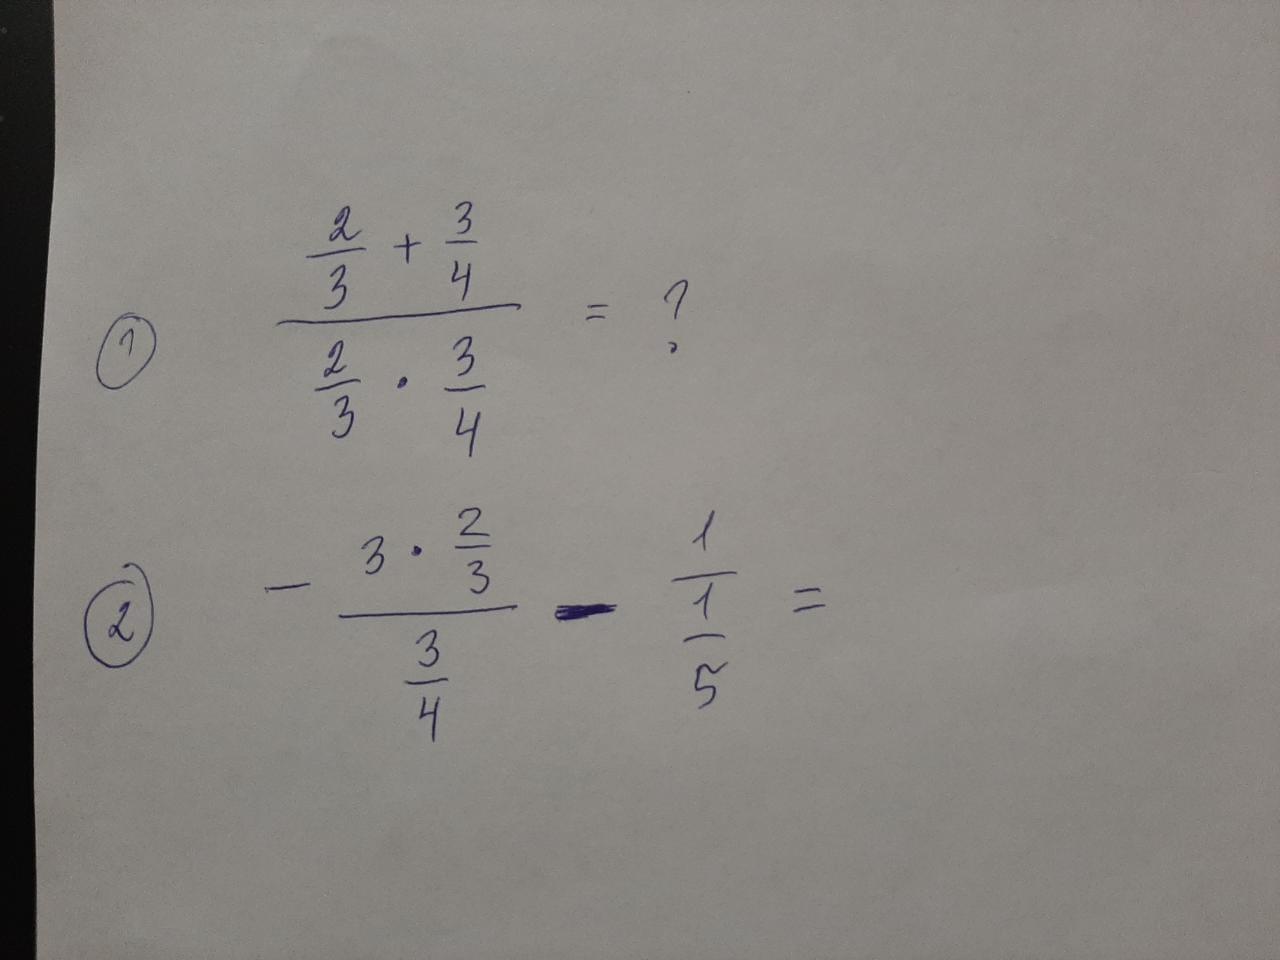 ① (2/3 + 3/4) / (2/3 · 3/4) = ?
② - (3 · 2/3) / (3/4) - 1 / (1/5) =